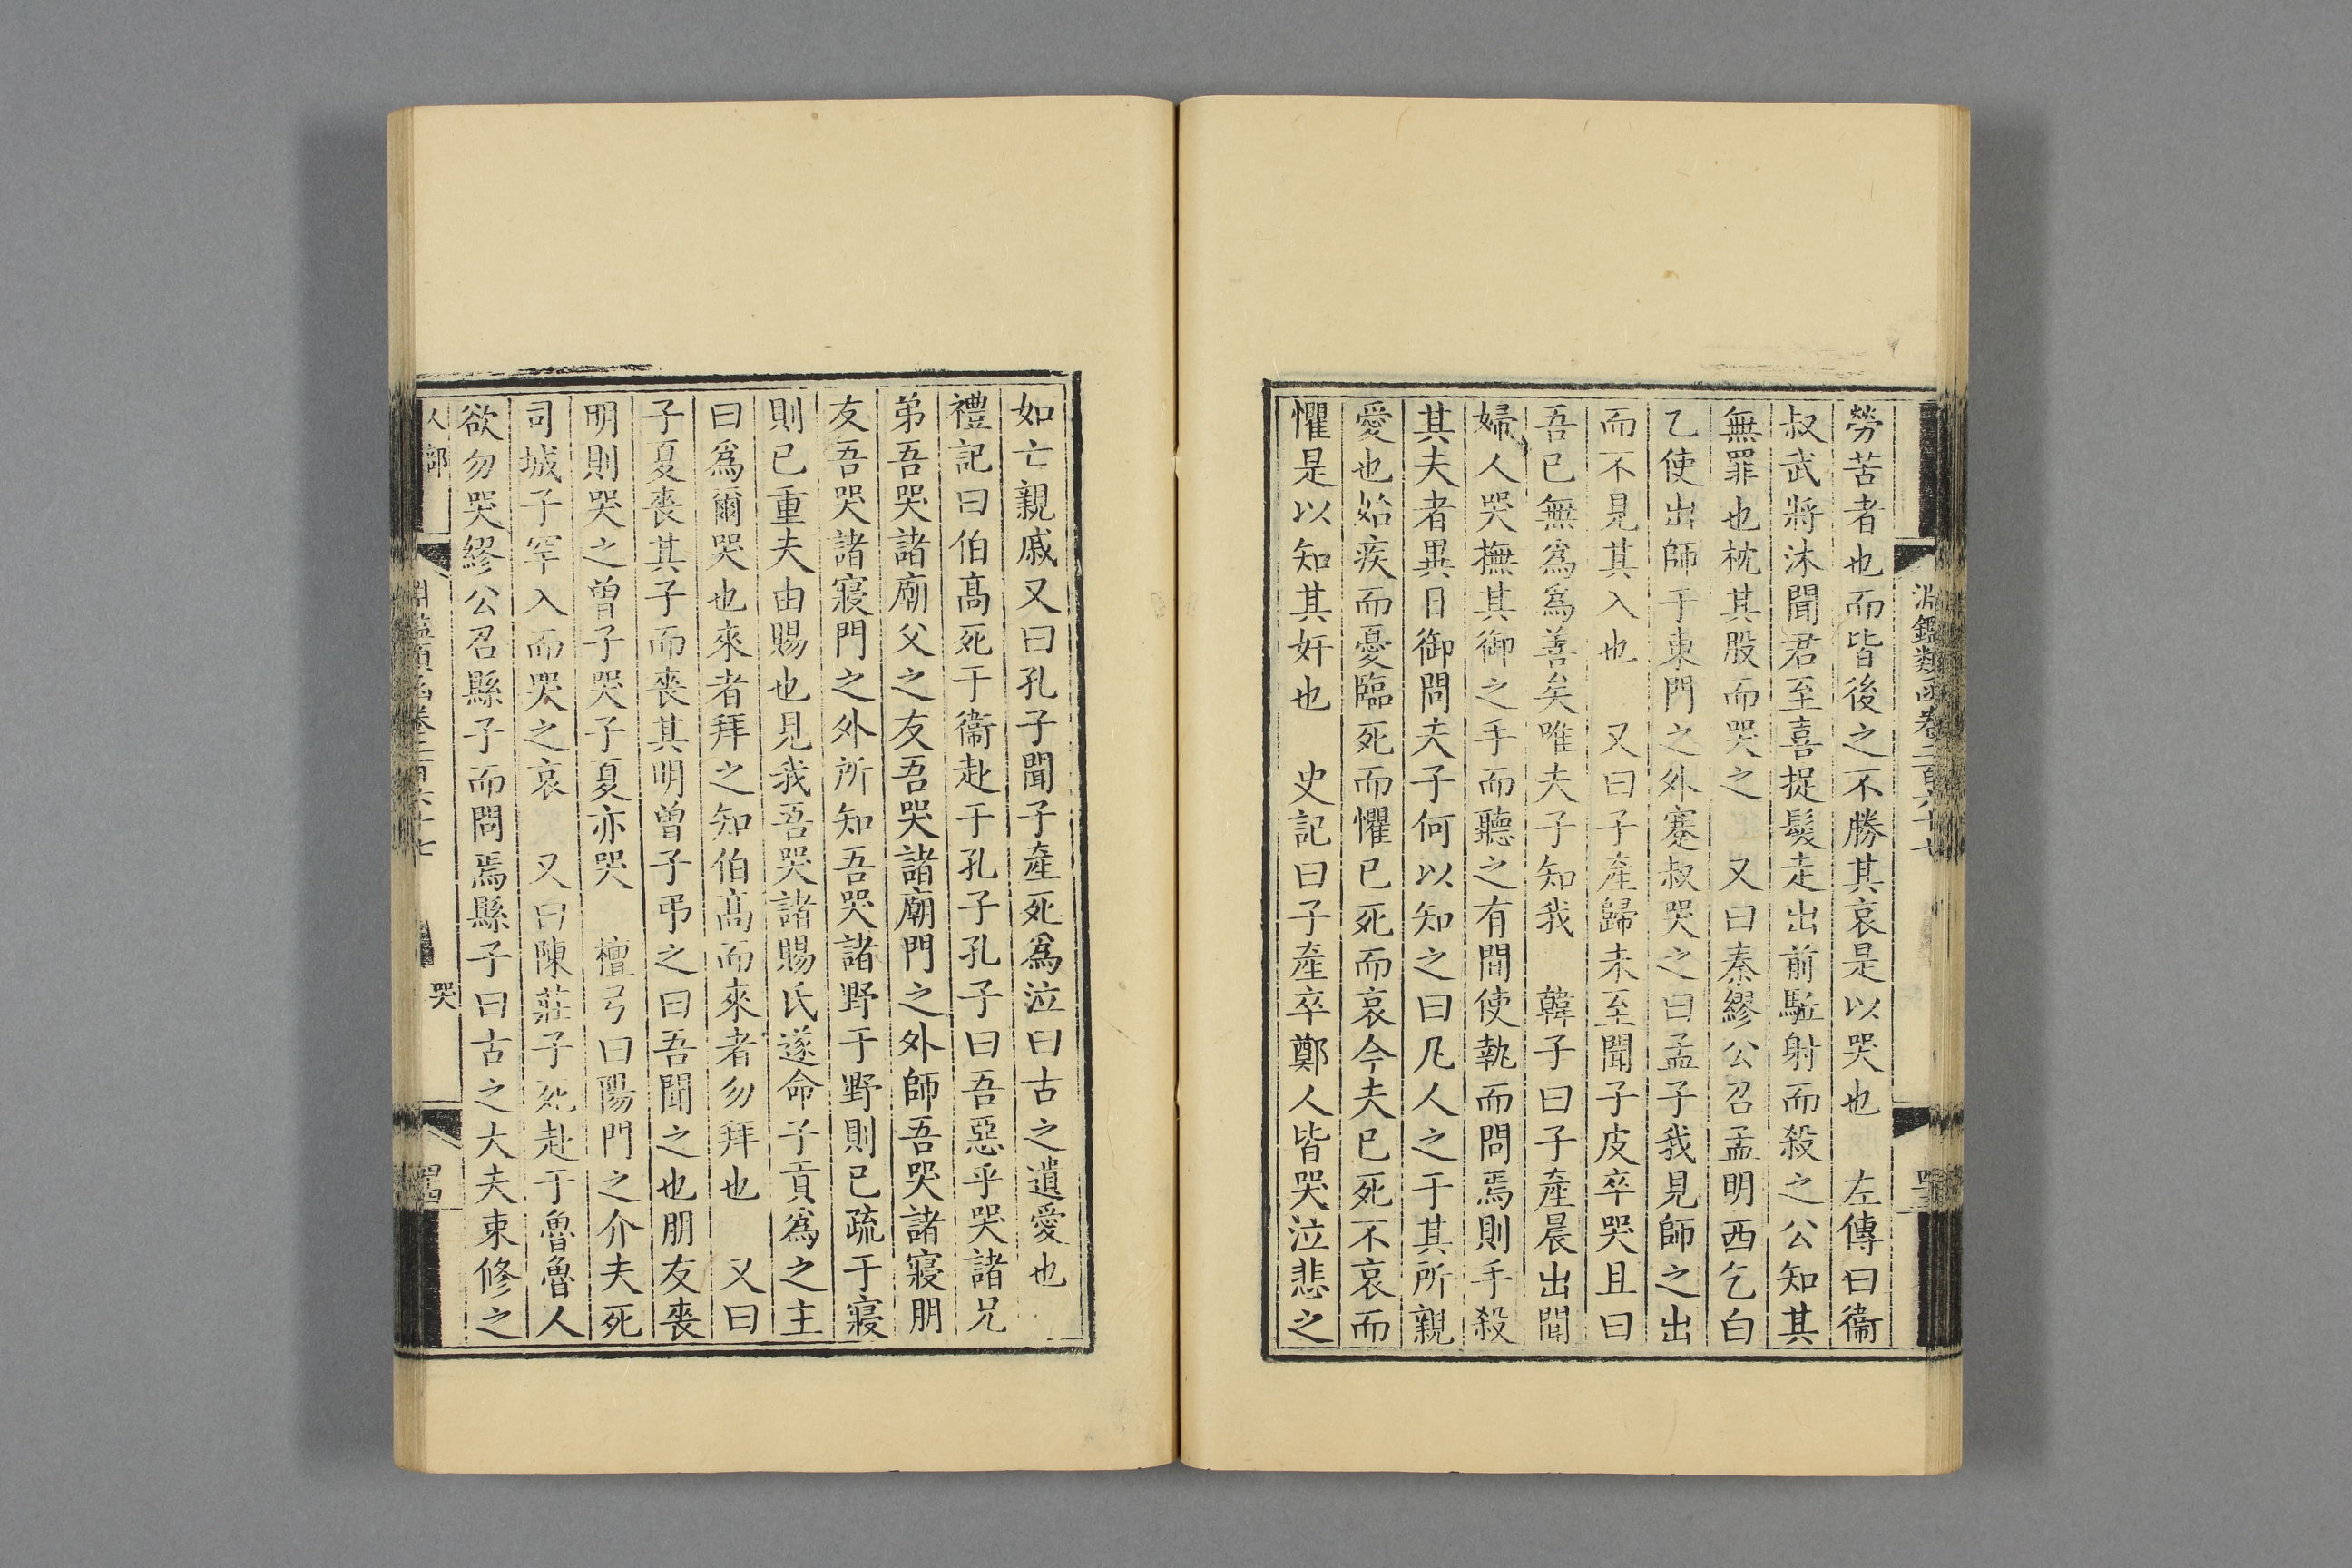 淵鑑類函卷二百六十七
勞苦者也而皆後之不勝其哀是以哭也　左傳曰衞
叔武將沐聞君至喜捉髮走出前驅射而殺之公知其
無罪也枕其股而哭之　又曰秦繆公召孟明西乞白
乙使出師于東門之外蹇叔哭之曰孟子我見師之出
而不見其入也　又曰子產歸未至聞子皮卒哭且曰
吾已無爲爲善矣唯夫子知我　韓子曰子產晨出聞
婦人哭撫其御之手而聽之有間使執而問焉則手殺
其夫者異日御問夫子何以知之曰凡人之于其所親
愛也始疾而憂臨死而懼已死而哀今夫已死不哀而
懼是以知其奸也　史記曰子產卒鄭人皆哭泣悲之
如亡親戚又曰孔子聞子產死爲泣曰古之遺愛也
禮記曰伯高死于衞赴于孔子孔子曰吾惡乎哭諸兄
弟吾哭諸廟父之友吾哭諸廟門之外師吾哭諸寢朋
友吾哭諸寢門之外所知吾哭諸野于野則已疏于寢
則已重夫由賜也見我吾哭諸賜氏遂命子貢爲之主
曰爲爾哭也來者拜之知伯高而來者勿拜也　又曰
子夏喪其子而喪其明曾子弔之曰吾聞之也朋友喪
明則哭之曾子哭子夏亦哭　檀弓曰陽門之介夫死
司城子罕入而哭之哀　又曰陳莊子死赴于魯魯人
欲勿哭繆公召縣子而問焉縣子曰古之大夫束修之
人部
淵鑑類函卷二百六十七
哭